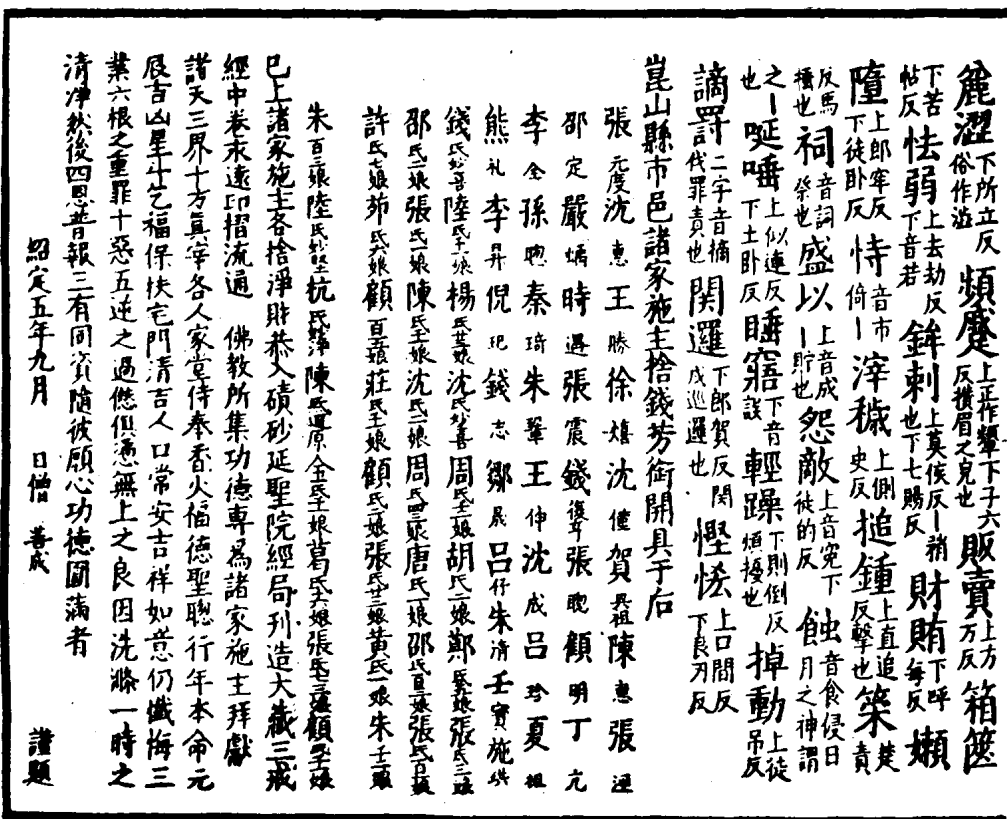 麄澀下所立反俗作澁 頻蹙上正作顰下子六反攢眉之皃也 販賣上方万反 箱篋
下苦帖反 怯弱上去劫反下音若 鉾刺上莫侯反丨矟也下七賜反 財賄下呼每反 嬾
墮上郎罕反下徒卧反 恃音市倚丨 滓穢上側史反 搥鍾上直追反擊也 筞楚責
反馬檛也 祠音詞祭也 盛以上音成丨貯也 怨敵上音寃下徒的反 蝕音食侵日月之神謂
之丨也 唌唾上似連反下土卧反 睡寤下音 輕躁下則倒反煩擾也 掉動上徒吊反
讁罰二字音摘伐罪責也 関邏下郎賀反関戍巡邏也 慳悋上口間反下良刃反
崑山縣市邑諸家施主捨錢芳銜開具于后
張元慶 沈惠 王勝 徐嬉 沈僮 賀異祖 陳惠 張逕
邵定 嚴熵 時遇 張震 錢復亨 張聦 顧明 丁元
李全 孫聦 秦琦 朱鞏 王伸 沈成 呂珍 夏祖
熊礼 李昇 倪玘 錢志 鄒晟 呂仔 朱清 王寶 施珙
錢氏妙喜 陸氏十一娘 楊氏廿娘 沈氏妙喜 周氏十二娘 胡氏一娘 鄭氏五娘 張氏三娘
邵氏二娘 張氏一娘 陳氏十娘 沈氏二娘 周氏四娘 唐氏一娘 邵氏百二娘 張氏百娘
許氏七娘 茆氏六娘 顧百二娘 莊氏十娘 顧氏二娘 張氏廿三娘 黃氏一娘 朱十二娘
朱百三娘 陸氏妙堅 杭氏妙淨 陳氏還原 今五氏十一娘 葛氏六娘 張氏三娘 顧四娘
已上諸家施主各捨淨財恭入磧砂延聖院經局刊造大藏三戒
經中卷末遠印摺流通 佛教所集功德專為諸家施主拜獻
諸天三界十方真宰各人家堂侍奉香火福德聖聦行年本命元
辰吉凶星斗乞福保扶宅門清吉人口常安吉祥如意仍懺悔三
業六根之重罪十惡五逆之過愆俱憑無上之良因洗滌一時之
清淨然後四恩普報三有同資隨彼願心功德圓滿者
紹定五年九月 日僧 善成 謹題